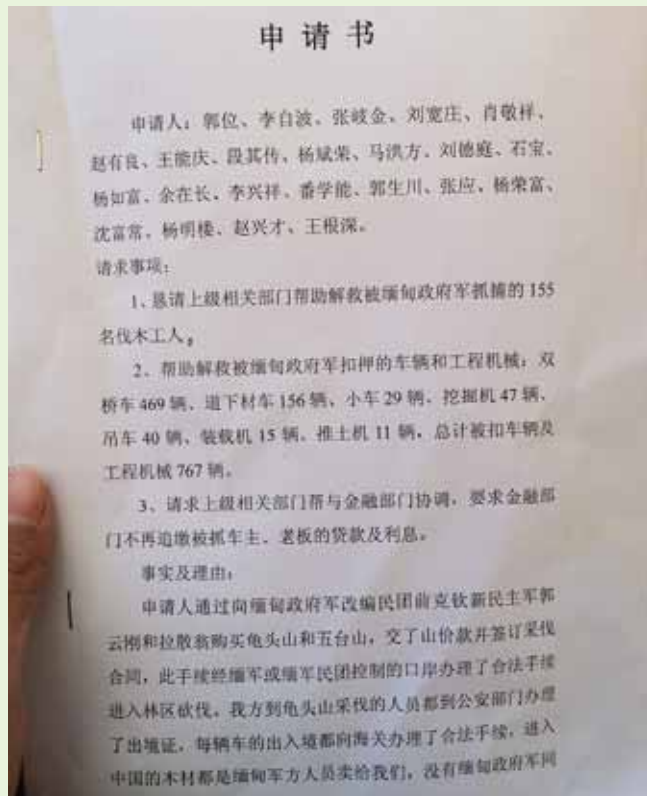 申请书
申请人：郭位、李自波、张岐金、刘宽庄、肖敬祥、
赵有良、王能庆、段其传、杨斌荣、马洪方、刘德庭、石宝、
杨如富、余在长、李兴祥、番学能、郭生川、张应、杨荣富、
沈富常、杨明楼、赵兴才、王根深。
请求事项：
1、恳请上级相关部门帮助解救被缅甸政府军抓捕的 155
名伐木工人。
2、帮助解救被缅甸政府军扣押的车辆和工程机械：双
桥车 469 辆、道下材车 156 辆、小车 29 辆、挖掘机 47 辆、
吊车 40 辆、装载机 15 辆、推土机 11 辆，总计被扣车辆及
工程机械 767 辆。
3、请求上级相关部门帮与金融部门协调，要求金融部
门不再追缴被抓车主、老板的贷款及利息。
事实及理由：
申请人通过向缅甸政府军改编民团前克钦新民主军郭
云刚和拉散翁购买龟头山和五台山，交了山价款并签订采伐
合同，此手续经缅军或缅军民团控制的口岸办理了合法手续
进入林区砍伐。我方到龟头山采伐的人员都到公安部门办理
了出境证，每辆车的出入境都向海关办理了合法手续，进入
中国的木材都是缅甸军方人员卖给我们，没有缅甸政府军同